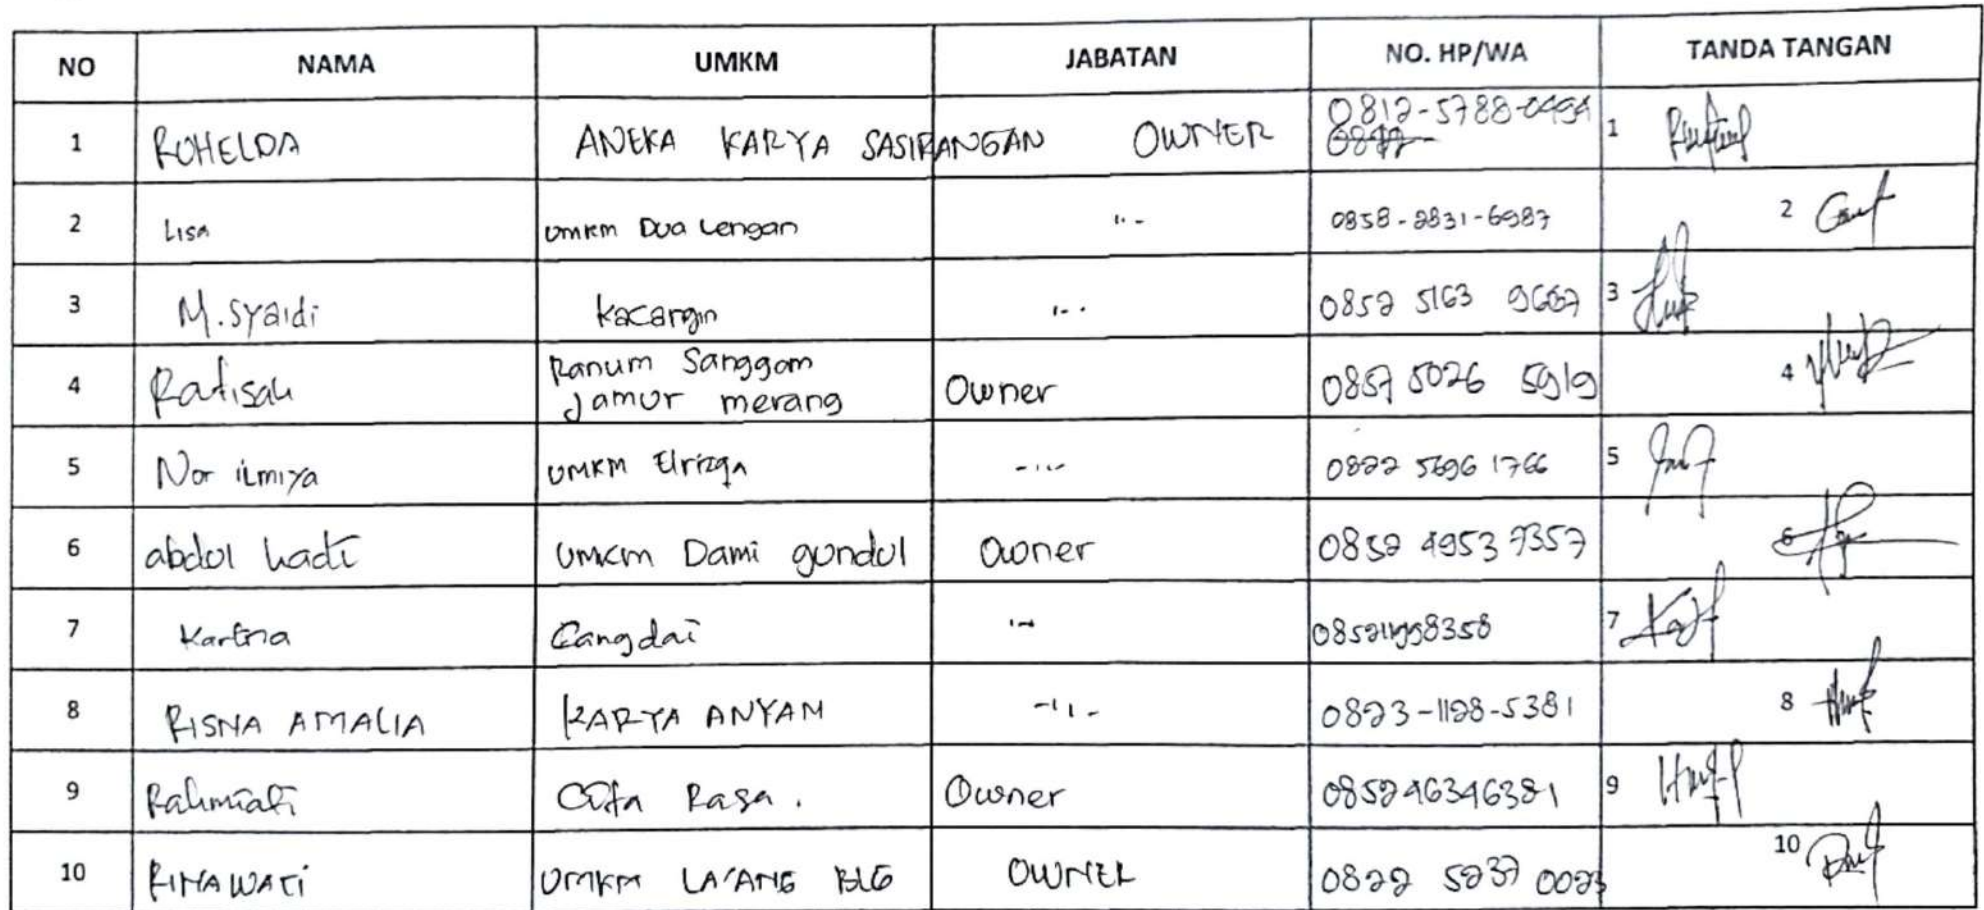 NO NAMA UMKM JABATAN NO. HP/WA TANDA TANGAN
1 ROHELDA ANEKA KARYA SASIRANGAN OWNER 0812-5788-0494 1
2 Lisa UMKM Dua Lengan "- 0858-2831-6987 2
3 M.Syaidi Kacangin "- 0852 5163 9667 3
4 Rafisah Ranum Sanggam Jamur merang Owner 0857 5026 5919 4
5 Nor ilmiya UMKM Elrizqa -"- 0822 5696 1766 5
6 abdol hadi UMKM Dami gundul Owner 0852 4953 7357 6
7 Kartina Cangdai "- 7
8 RISNA AMALIA KARYA ANYAM -"- 0823-1128-5381 8
9 Rahmiati Cita Rasa. Owner 085246346381 9
10 RINAWATI UMKM LA'ANG BLG OWNER 0822 5237 0023 10